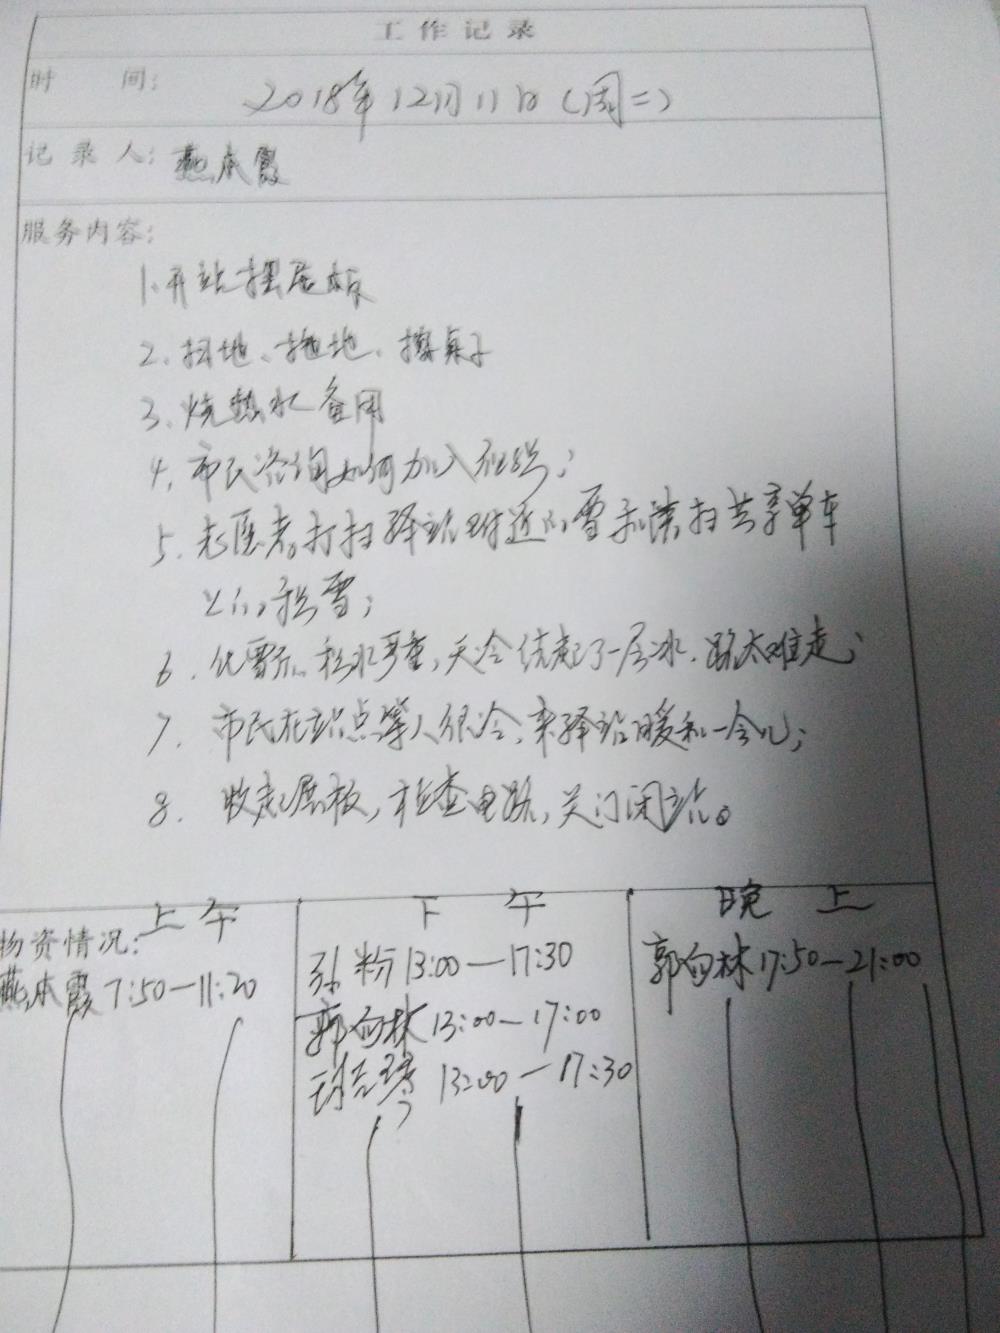 工作记录
时 间: 2018年12月11日(周二)
记录人: 燕本霞
服务内容:
1.开站摆展板
2、扫地、拖地、擦桌子
3、烧热水备用
4、市民咨询如何加入组织;
5、志愿者打扫驿站附近的雪和清扫共享单车
上的积雪;
6、化雪后积水严重,天冷结起了一层冰,路太难走;
7、市民在站点等人很冷,来驿站暖和一会儿;
8、收起展板,检查电路,关门闭站。
上午 下午 晚上
物资情况:
燕本霞 7:50—11:20
孙粉 13:00—17:30
郭向林 13:00—17:00
13:00—17:30
郭向林 17:50—21:00